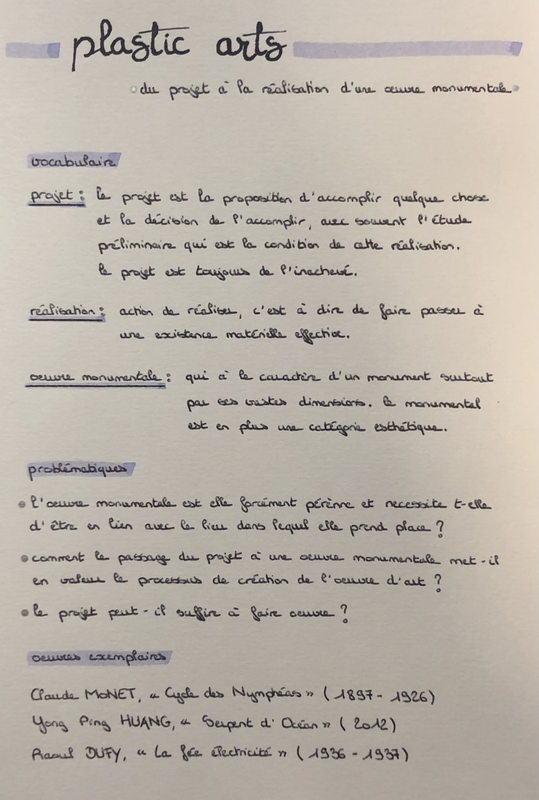 plastic arts
du projet à la réalisation d'une œuvre monumentale
vocabulaire
projet : le projet est la proposition d'accomplir quelque chose
et la décision de l'accomplir, avec souvent l'étude
préliminaire qui est la condition de cette réalisation.
le projet est toujours de l'inachevé.
réalisation : action de réaliser, c'est à dire de faire passer à
une existence matérielle effective.
oeuvre monumentale : qui à le caractère d'un monument surtout
par ses vastes dimensions. le monumental
est en plus une catégorie esthétique.
problématiques
l'oeuvre monumentale est elle forcément pérènne et necessite t-elle
d'être en lien avec le lieu dans lequel elle prend place ?
comment le passage du projet à une oeuvre monumentale met-il
en valeur le processus de création de l'oeuvre d'art ?
le projet peut-il suffire à faire oeuvre ?
oeuvres exemplaires
Claude MONET, « Cycle des Nymphéas » (1897-1926)
Yong Ping HUANG, « Serpent d'Océan » (2012)
Raoul DUFY, « La fée électricité » (1936-1937)